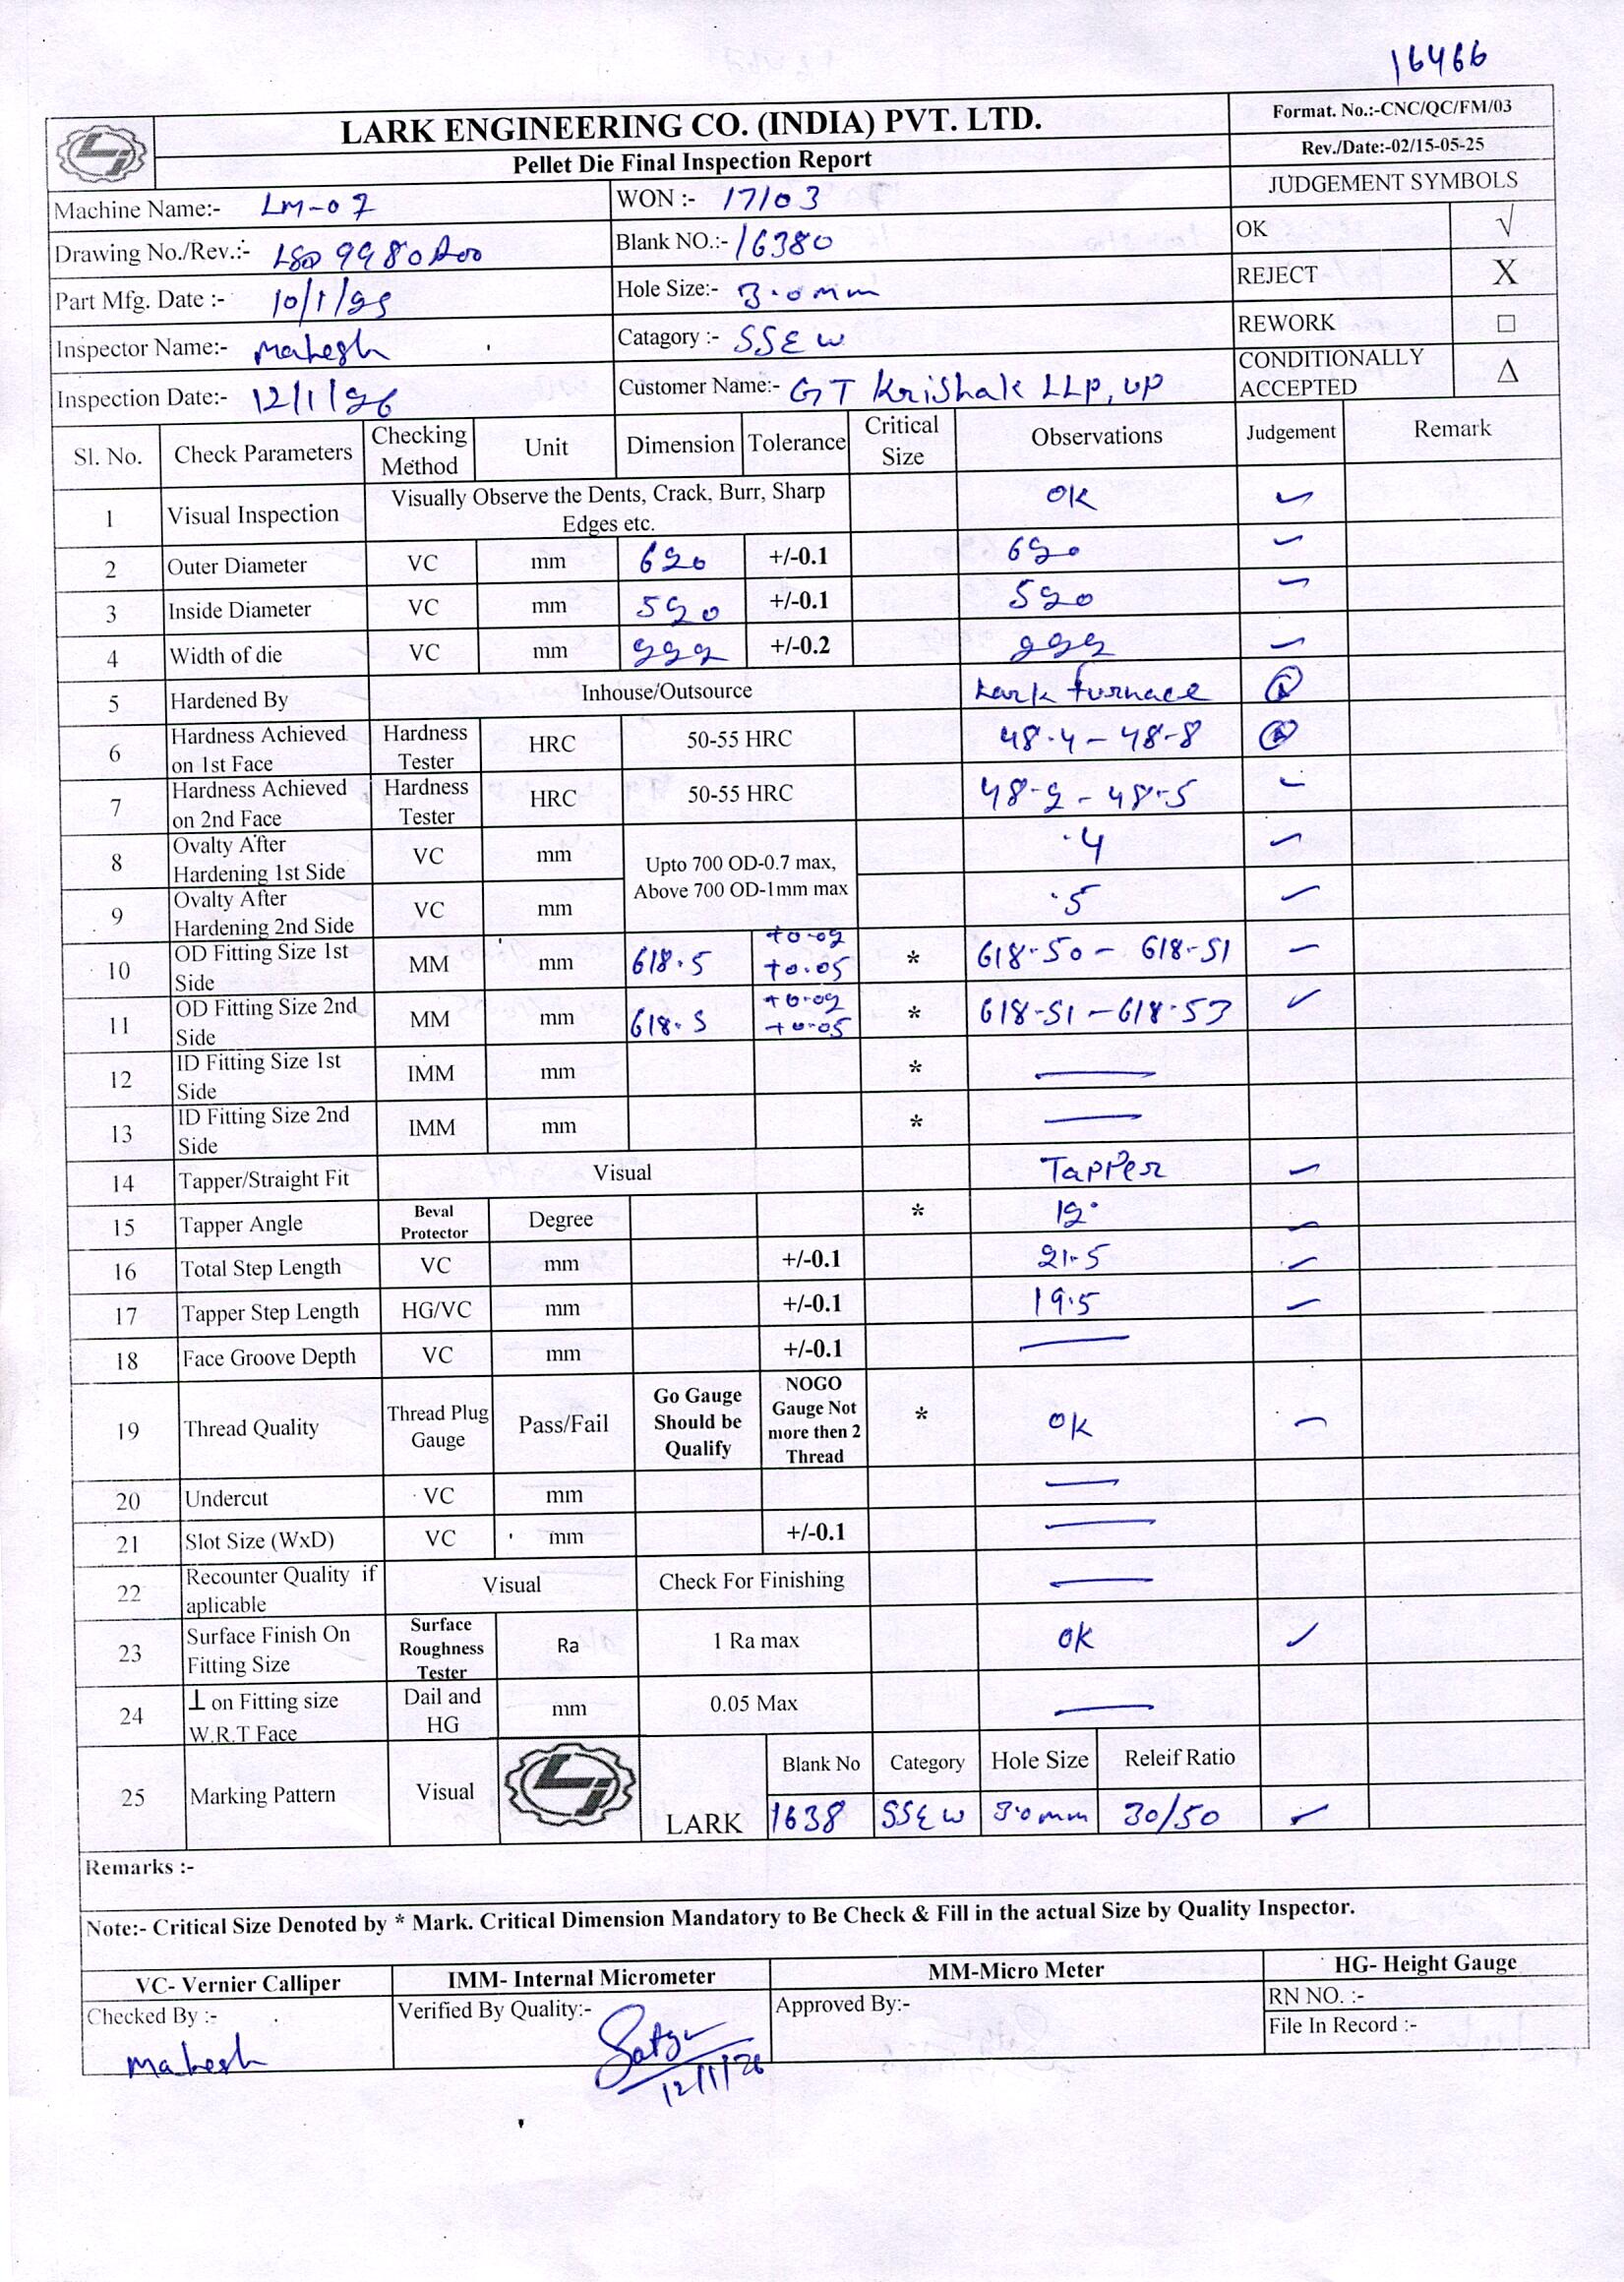 16466
LARK ENGINEERING CO. (INDIA) PVT. LTD.
Pellet Die Final Inspection Report
Format. No.:-CNC/QC/FM/03
Rev./Date:-02/15-05-25
Machine Name:- LM-07
WON :- 17103
JUDGEMENT SYMBOLS
Drawing No./Rev.:- LSD 9980 R00
Blank NO.:- 16380
OK √
Part Mfg. Date :- 10/1/25
Hole Size:- 3.0mm
REJECT X
Inspector Name:- Mahesh
Catagory :- SSEW
REWORK □
Inspection Date:- 12/1/26
Customer Name:- GT Krishak LLP, UP
CONDITIONALLY ACCEPTED Δ
Sl. No. Check Parameters Checking Method Unit Dimension Tolerance Critical Size Observations Judgement Remark
1 Visual Inspection Visually Observe the Dents, Crack, Burr, Sharp Edges etc. OK
2 Outer Diameter VC mm 620 +/-0.1 620
3 Inside Diameter VC mm 520 +/-0.1 520
4 Width of die VC mm 222 +/-0.2 222
5 Hardened By Inhouse/Outsource Lark furnace
6 Hardness Achieved on 1st Face Hardness Tester HRC 50-55 HRC 48.4 - 48.8
7 Hardness Achieved on 2nd Face Hardness Tester HRC 50-55 HRC 48.2 - 48.5
8 Ovalty After Hardening 1st Side VC mm Upto 700 OD-0.7 max, Above 700 OD-1mm max .4
9 Ovalty After Hardening 2nd Side VC mm .5
10 OD Fitting Size 1st Side MM mm 618.5 +0.02 +0.05 * 618.50 - 618.51
11 OD Fitting Size 2nd Side MM mm 618.5 +0.02 +0.05 * 618.51 - 618.53
12 ID Fitting Size 1st Side IMM mm *
13 ID Fitting Size 2nd Side IMM mm *
14 Tapper/Straight Fit Visual Tapper
15 Tapper Angle Beval Protector Degree * 12°
16 Total Step Length VC mm +/-0.1 21.5
17 Tapper Step Length HG/VC mm +/-0.1 19.5
18 Face Groove Depth VC mm +/-0.1
19 Thread Quality Thread Plug Gauge Pass/Fail Go Gauge Should be Qualify NOGO Gauge Not more then 2 Thread * OK
20 Undercut VC mm
21 Slot Size (WxD) VC mm +/-0.1
22 Recounter Quality if aplicable Visual Check For Finishing
23 Surface Finish On Fitting Size Surface Roughness Tester Ra 1 Ra max OK
24 ⊥ on Fitting size W.R.T Face Dail and HG mm 0.05 Max
25 Marking Pattern Visual LARK Blank No Category Hole Size Releif Ratio
1638 SSEW 3.0mm 30/50
Remarks :-
Note:- Critical Size Denoted by * Mark. Critical Dimension Mandatory to Be Check & Fill in the actual Size by Quality Inspector.
VC- Vernier Calliper IMM- Internal Micrometer MM-Micro Meter HG- Height Gauge
Checked By :- Mahesh
Verified By Quality:- 12/1/26
Approved By:-
RN NO. :-
File In Record :-